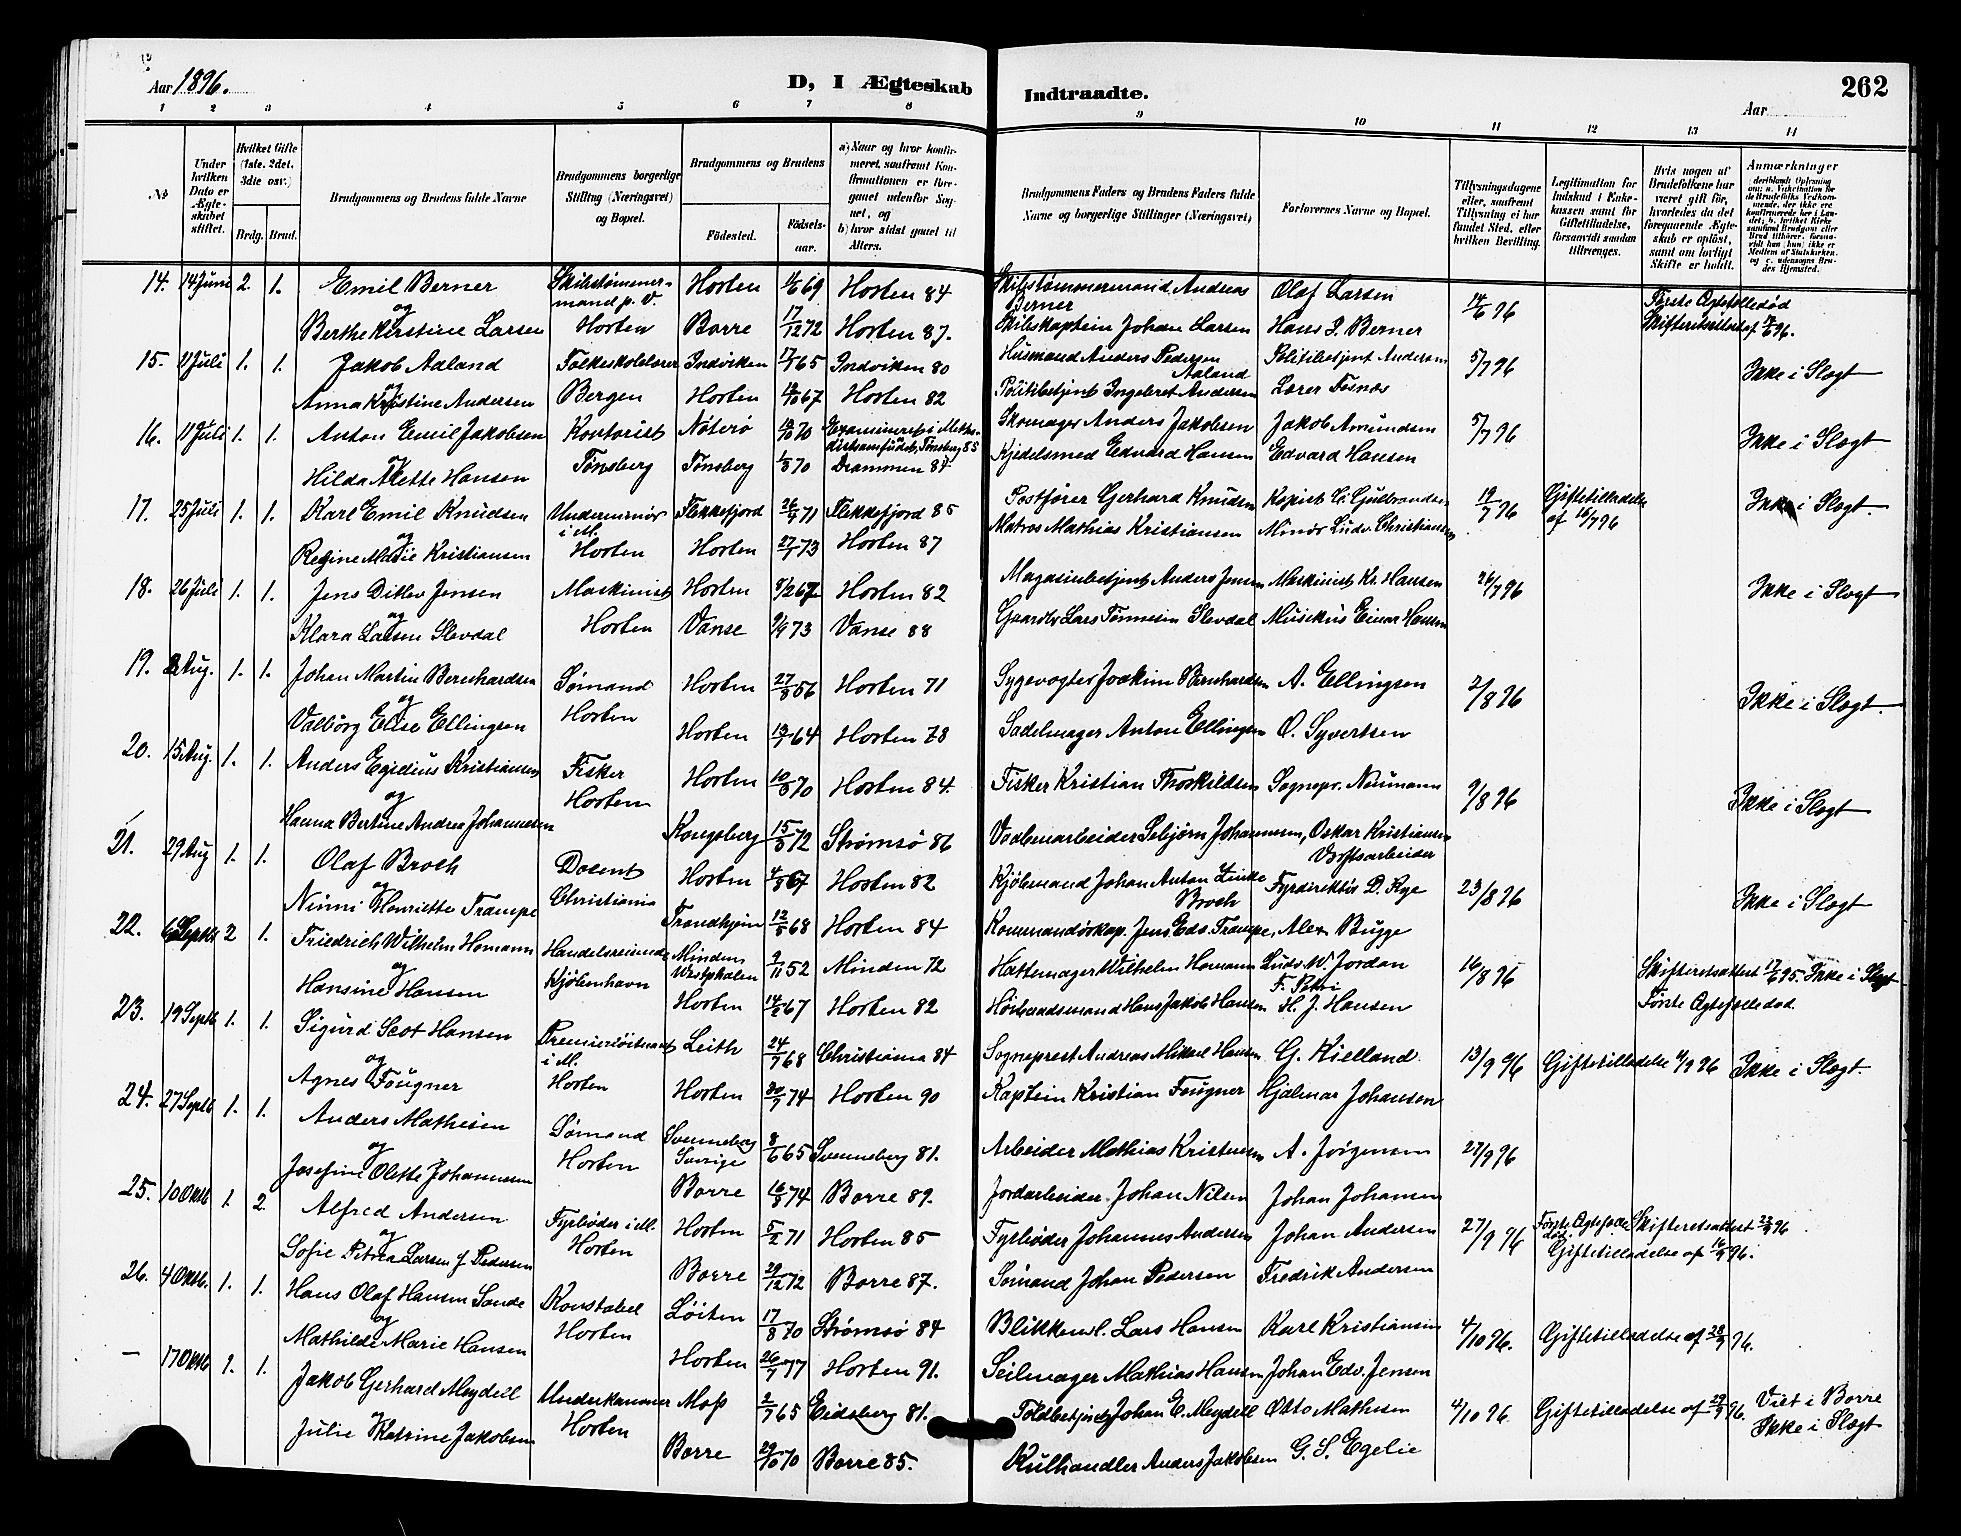 Aar 1896.
D, I Ægteskab
Indtraadte.
Aar
262
1 2 3 4 5 6 7 8 9 10 11 12 13 14
No
Under hvilken Dato er Ægteskabet stiftet.
Hvilket Gifte (1ste, 2det, 3die osv.)
Brdg. Brud.
Brudgommens og Brudens fulde Navne
Brudgommens borgerlige Stilling (Næringsvei) og Bopæl.
Brudgommens og Brudens
Fødested.
Fødselsaar.
a) Naar og hvor konfirmeret, saafremt Konfirmationen er foregaaet udenfor Sognet, og
b) hvor sidst gaaet til Alters.
Brudgommens Faders og Brudens Faders fulde Navne og borgerlige Stillinger (Næringsvei)
Forlovernes Navne og Bopæl.
Tillysningsdagene eller, saafremt Tillysning ei har fundet Sted, efter hvilken Bevilling.
Legitimation for Indskud i Enkekassen samt for Giftetilladelse, forsaavidt saadan tiltrænges.
Hvis nogen af Brudefolkene har været gift før, hvorledes da det foregaaende Ægteskab er opløst, samt om lovligt Skifte er holdt.
Anmærkninger
14. 14 Juni 2. 1. Emil Berner Skibstømmermand p. V. Horten 69 Horten 84 Skibstømmermand Andreas Berner Olaf Larsen 14/6 96 Første Ægtefælle død
og
Berthe Kirstine Larsen Horten Borre 17/12 72 Horten 87. Skibskaptein Johan Larsen Hans J. Berner Skifteretsattest af 96.
15. 11 Juli 1. 1. Jakob Aaland Folkeskolelærer Indviken 65 Indviken 80 Husmand Anders Pedersen Aaland Politibetjent Andersen 5/7 96 Ikke i Slægt
og
Anna Kristine Andersen Bergen Horten 67 Horten 82 Politibetjent Ingebret Andersen Lærer Fosnæs
16. 11 Juli 1. 1. Anton Emil Jakobsen Kontorist Nøterø 70 Examineret i Methodistsamfundet, Tønsberg 85 Skomager Anders Jakobsen Jakob Amundsen 5/7 96 Ikke i Slægt
og
Hilda Alette Hansen Tønsberg Tønsberg 70 Drammen 84 Kjedelsmed Edvard Hansen Edvard Hansen
17. 25 Juli 1. 1. Karl Emil Knudsen Underminør i M. Flekkefjord 71 Flekkefjord 85 Postfører Gerhard Knudsen Kopist Gulbrandsen 19/7 96 Giftetilladelse af 16/7 96 Ikke i Slægt
og
Regine Marie Kristiansen Horten Horten 27/7 73 Horten 87 Matros Mathias Kristiansen Minør Ludv. Christiansen
18. 26 Juli 1. 1. Jens Ditlev Jensen Maskinist Horten 67 Horten 82 Magasinbetjent Anders Jensen Maskinist Kr. Hansen 26/7 96 Ikke i Slægt
og
Klara Larsen Slevdal Horten Vanse 73 Vanse 88 Gaardbr Lars Tønnesen Slevdal Musikus Einar Hansen
19. Aug. 1. 1. Johan Martin Bernhardsen Sømand Horten 56 Horten 71 Sygevogter Joakim Bernhardsen A. Ellingsen 2/8 96 Ikke i Slægt.
og
Valborg Elise Ellingsen Horten Horten 64 Horten 78 Sadelmager Anton Ellingsen O. Syvertsen
20. 15 Aug. 1. 1. Anders Egidius Kristiansen Fisker Horten 70 Horten 84. Fisker Kristian Thorkildsen Sognepr. Neumann 9/8 96 Ikke i Slægt
og
Hanna Bertine Andrea Johannesen Horten Kongsberg 72 Strømsø 86 Vadbenarbeider Sebjørn Johannesen, Oskar Kristiansen Værftsarbeider
21. 29 Aug 1. 1. Olaf Broch Docent Horten 4/8 67 Horten 82 Kjøbmand Johan Anton Zinke Broch Fyrdirektør D. Rye 23/8 96 Ikke i Slægt
og
Ninni Henriette Trampe Christiania Trondhjem 68 Horten 84 Kommandørkap. Jens Edv. Trampe, Alex Bugge
22. 6 Septb 2 1. Friedrich Wilhelm Homann Handelsreisende Minden Westphalen 52 Minden 72 Hattemager Wilhelm Homann Ludv. W. Jordan 16/8 96 Skifteretsattest 95. Ikke i Slægt
og
Hansine Hansen Kjøbenhavn Horten 67 Horten 82 Høibaadsmand Hans Jakob Hansen F. Petri H. J. Hansen Første Ægtefælle død.
23. 19 Septb 1. 1. Sigurd Scot Hansen Premierløitnant i M. Leith 24/7 68 Christiania 84 Sogneprest Andreas Mikael Hansen G. Kielland. 13/9 96 Giftetilladelse 9 96 Ikke i Slægt.
og
Agnes Fougner Horten Horten 74 Horten 90 Kaptein Kristian Fougner Hjalmar Johansen
24. 27 Septb 1. 1. Anders Mathisen Sømand Svenneby Sverige 65 Svenneby 81. Arbeider Mathias Kristensen A. Jørgensen 27/9 96
og
Josefine Olette Johannesen Horten Borre 74 Borre 89. Jordarbeider Johan Nilsen Johan Johansen
25. 10 Oktb 1. 2. Alfred Andersen Fyrbøder i M. Horten 5/2 71 Horten 85 Fyrbøder Johannes Andersen Johan Andersen 27/9 96 Første Ægtefælle død Skifteretsattest 96
og
Sofie Petrea Larsen f. Pedersen Horten Borre 29/12 72 Borre 87. Sømand Johan Pedersen Fredrik Andersen Giftetilladelse af 96.
26. 4 Oktb. 1. 1. Hans Olaf Hansen Sande Konstabel Løiten 17/8 70 Strømsø 84 Blikkensl. Lars Hansen Karl Kristiansen 4/10 96. Giftetilladelse af 96.
og
Mathilde Marie Hansen Horten Horten 26/7 77 Horten 91. Seilmager Mathias Hansen Johan Edv. Jensen
— 17 Oktb 1. 1. Jakob Gerhard Meydell Underkanoner Moss 2/7 65 Eidsberg 81. Toldbetjent Johan E. Meydell Otto Mathisen 4/10 96. Giftetilladelse af 96. Viet i Borre
Julie Katrine Jakobsen Horten Borre 70 Borre 85. Kulhandler Anders Jakobsen G. S. Egelie Ikke i Slægt